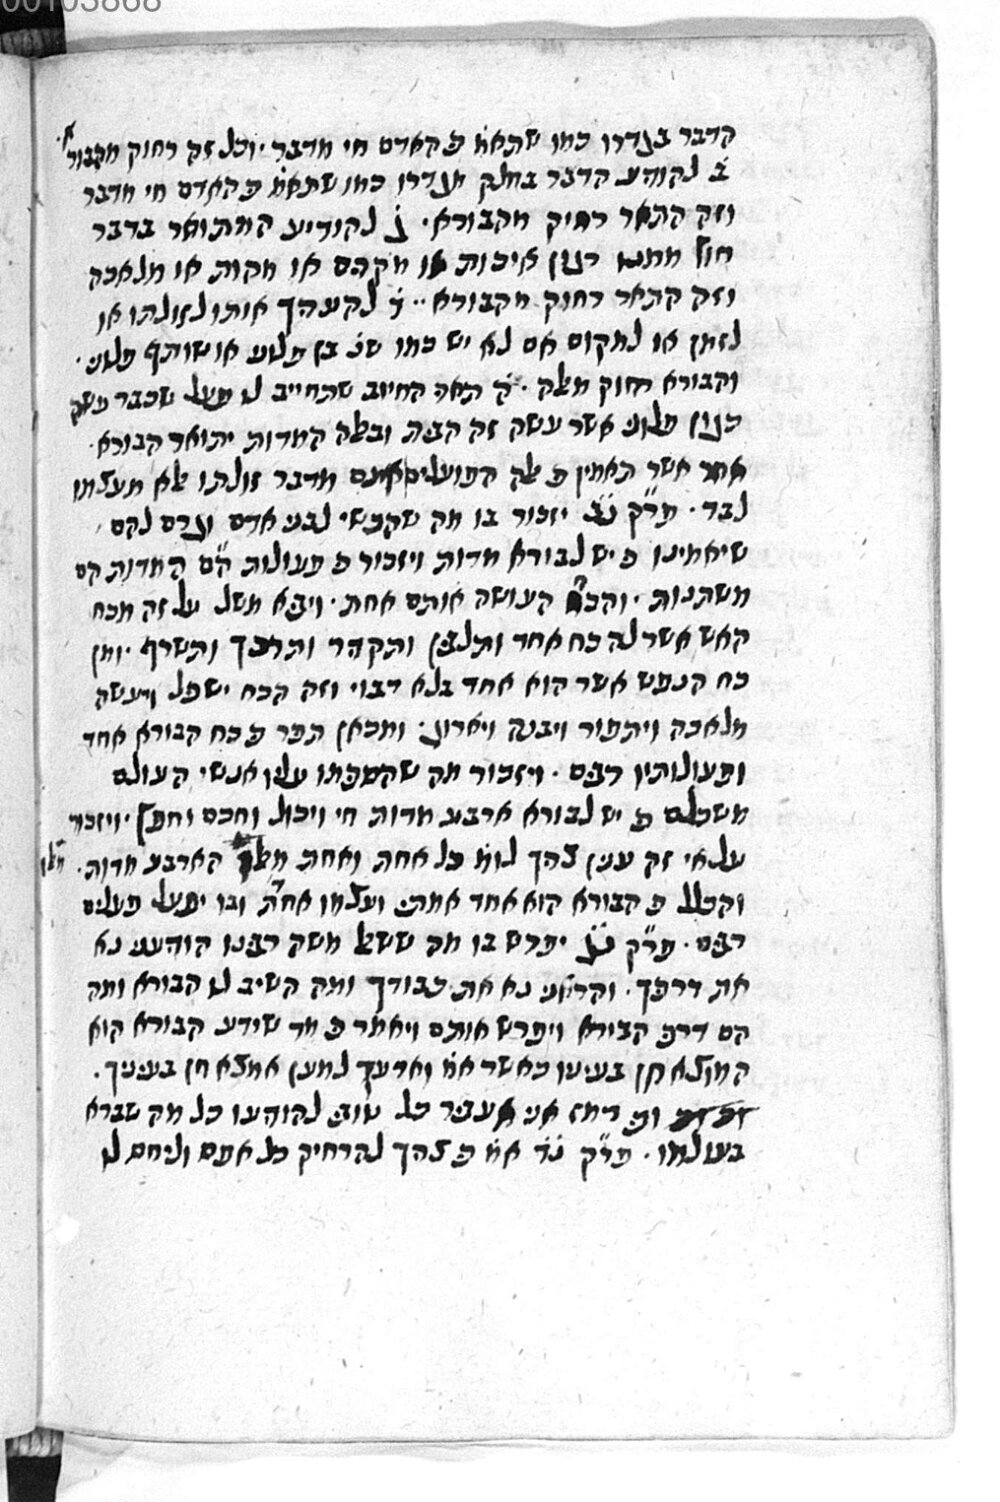 הדבר בגדרו כמו שתאמ׳ כי האדם חי מדבר · וכל זה רחוק מהבור׳
ב׳ להודיע הדבר בחלק מגדרו כמו שתאמ׳ כי האדם חי מדבר
וזה התאר רחוק מהבורא · ג׳ להודיע המתואר בדבר
חוץ ממנו כגון איכות או מקהם או מקות או מלאכה
וזה התאר רחוק מהבורא ·· ד׳ להעריך אותו לזולתו או
לזמן או למקום אם לא יש כמו שנ׳ בן פלוני או שותף פלוני ·
והבורא רחוק מאלה · ה׳ תאר החיוב שתחייב לו פעל שכבר עשה
כגון פלוני אשר עשה זה הבית ובאלה המדות יתואר הבורא ·
אחר אשר תאמין כי אלה הפועלים אינם מדבר זולתו אלא מעצמו
לבד · פר״ק נ״ב יזכור בו מה שהמשי לבני אדם וגרם להם
שיאמינו כי יש לבורא מדות ויזכור כי פעולות הש״ם המדות הם
משתנות · והכח העושה אותם אחת · ויביא משל על זה מכח
האש אשר לה כח אחד ותלבין ותקדר ותרכך ותשרף · ומן
כח הנפש אשר הוא אחד בלא רבוי וזה הכח ישכל ויעשה
מלאכה ויתפור ויבנה ויארוג · ומכאן תכר כי כח הבורא אחד
ופעולותיו רבים · ויזכור מה שהסכמתו עליו אנשי העולם
משכלם כי יש לבורא ארבע מדות חי ויכול וחכם וחפץ · ויזכור
על אי זה ענין צריך לומ׳ כל אחת ואחת מאלה הארבע מדות ·
והכלל כי הבורא הוא אחד אמתי ועצמו אחת ובו יפעל פעלים
רבים · פר״ק נ״ג יפרש בו מה ששאל משה רבנו הודיעני נא
את דרכיך · והראני נא את כבודך ומה השיב לו הבורא ומה
הם דרכי הבורא ויפרש אותם ויאמר כי מי שידע הבורא הוא
המוצא חן בעיניו כאשר אמ׳ ואדעך למען אמצא חן בעיניך ·
וכי רמז אני אעביר כל טובי להודיעו כל מה שברא
בעולמו · פר״ק נ״ד אמ׳ כי צריך להרחיק כל אתם וליחס לו